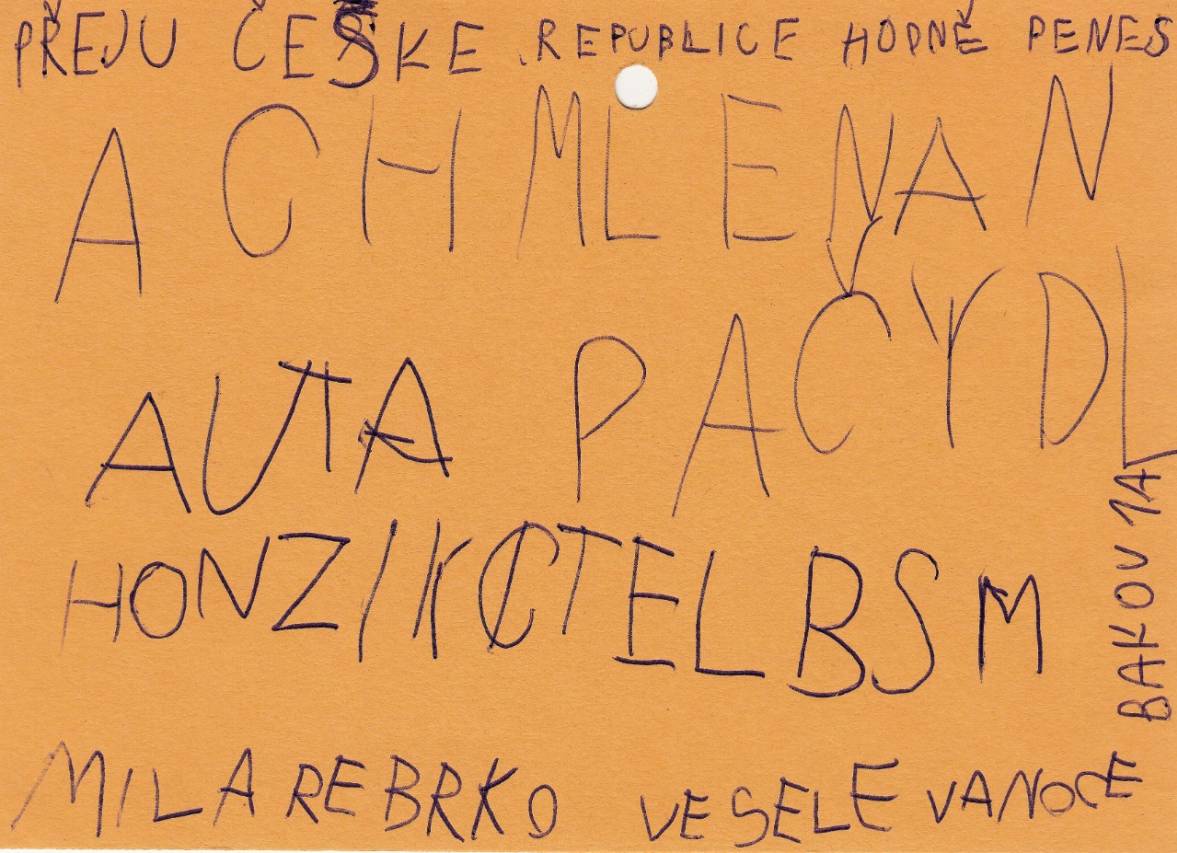 PŘEJU ČESKE REPUBLICE HODNĚ PENES
A CHMLENAN
AUTA PAČYDL
HONZIK CTEL BSM
BAKOV 1A
MILA REBRKO VESELE VANOCE